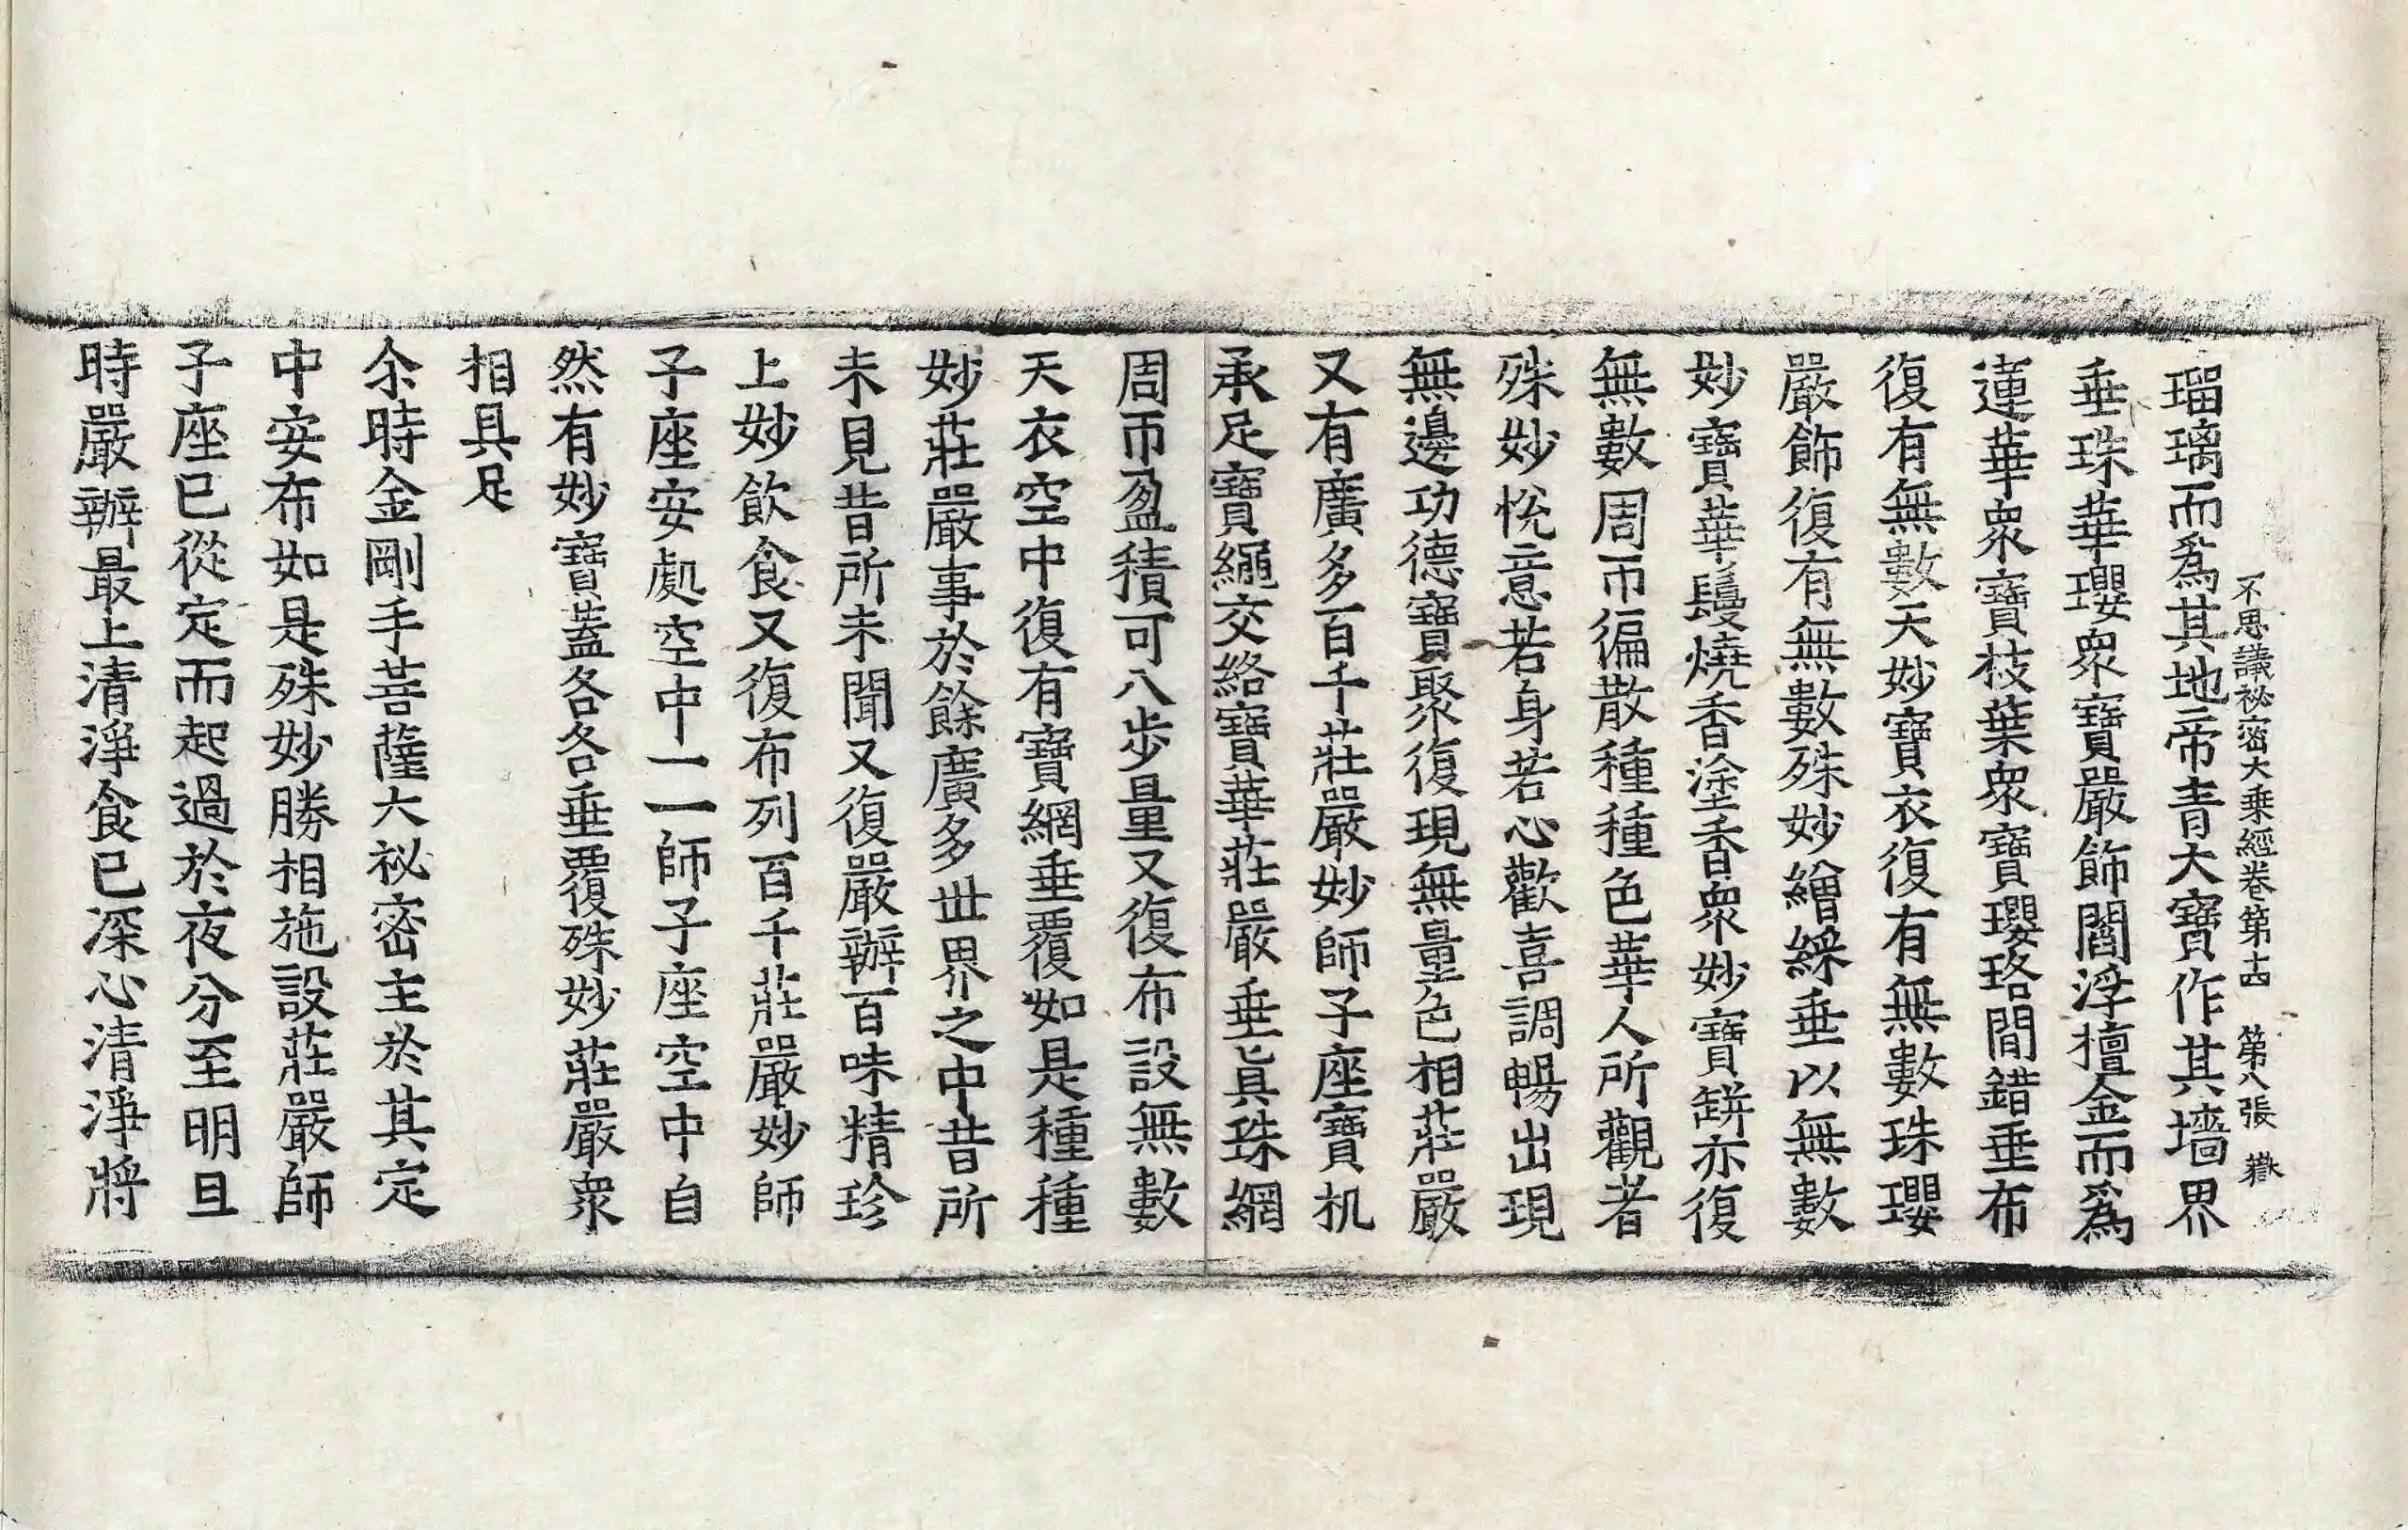 不思議祕密大乘經卷第十四　第八張　嶽
瑠璃而爲其地帝青大寶作其墻界
垂珠華瓔衆寶嚴飾閻浮檀金而爲
蓮華衆寶枝葉衆寶瓔珞間錯垂布
復有無數天妙寶衣復有無數珠瓔
嚴飾復有無數殊妙繒綵垂以無數
妙寶華鬘燒香塗香衆妙寶缾亦復
無數周帀徧散種種色華人所觀者
殊妙悅意若身若心歡喜調暢出現
無邊功德寶聚復現無量色相莊嚴
又有廣多百千莊嚴妙師子座寶机
承足寶繩交絡寶華莊嚴垂眞珠網
周帀盈積可八步量又復布設無數
天衣空中復有寶網垂覆如是種種
妙莊嚴事於餘廣多世界之中昔所
未見昔所未聞又復嚴辦百味精珍
上妙飲食又復布列百千莊嚴妙師
子座安處空中一一師子座空中自
然有妙寶蓋各各垂覆殊妙莊嚴衆
相具足
尒時金剛手菩薩大祕密主於其定
中安布如是殊妙勝相施設莊嚴師
子座已從定而起過於夜分至明旦
時嚴辦最上清淨食已深心清淨將